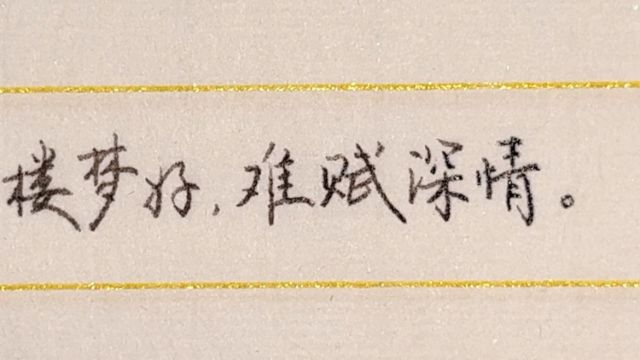 楼梦好,难赋深情。